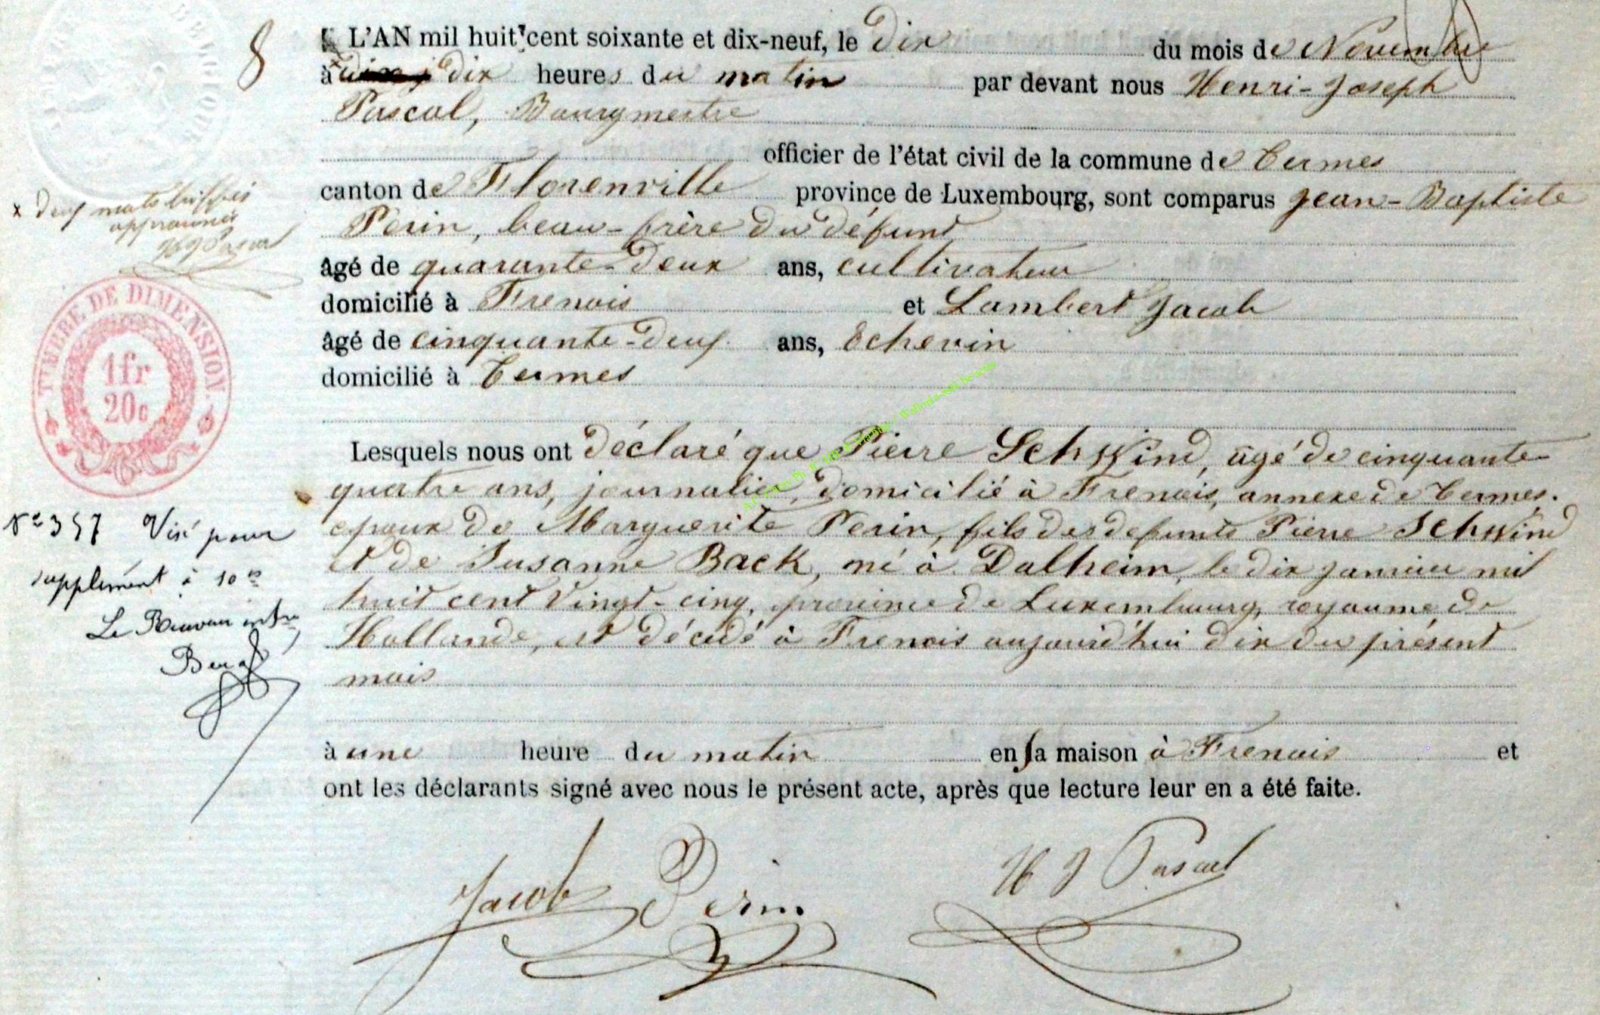 8
L'AN mil huit cent soixante et dix-neuf, le dix du mois de Novembre
à dix heures du matin par devant nous Henri-Joseph
Pascal, Bourgmestre
officier de l'état civil de la commune de Termes
canton de Florenville province de Luxembourg, sont comparus Jean-Baptiste
Perin, beau-frère du défunt
âgé de quarante-deux ans, cultivateur
domicilié à Frenois et Lambert Jacob
âgé de cinquante-deux ans, Echevin
domicilié à Termes
Lesquels nous ont déclaré que Pierre Schwind, âgé de cinquante
quatre ans, journalier, domicilié à Frenois, annexe de Termes.
epoux de Marguerite Perin, fils des defunts Pierre Schwind
et de Susanne Back, né à Dalheim, le dix janvier mil
huit cent vingt-cinq, province de Luxembourg, royaume de
Hollande, est décédé à Frenois aujourd'hui dix du présent
mois
à une heure du matin en sa maison à Frenois et
ont les déclarants signé avec nous le présent acte, après que lecture leur en a été faite.
Jacob Perin H J Pascal
x Deux mots biffés
approuvés
HJ Pascal
TIMBRE DE DIMENSION.
1fr
20c
N° 357 Visé pour
supplément à 10 cs
Le Receveur